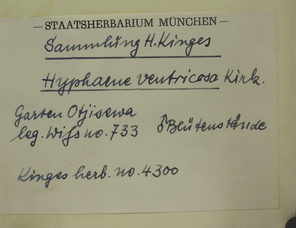 — STAATSHERBARIUM MÜNCHEN —
Sammlung H. Kinges
Hyphaene ventricosa Kirk.
Garten Otjisewa
leg. Wiss no. 733 ♂ Blütenstände
Kinges herb. no. 4300